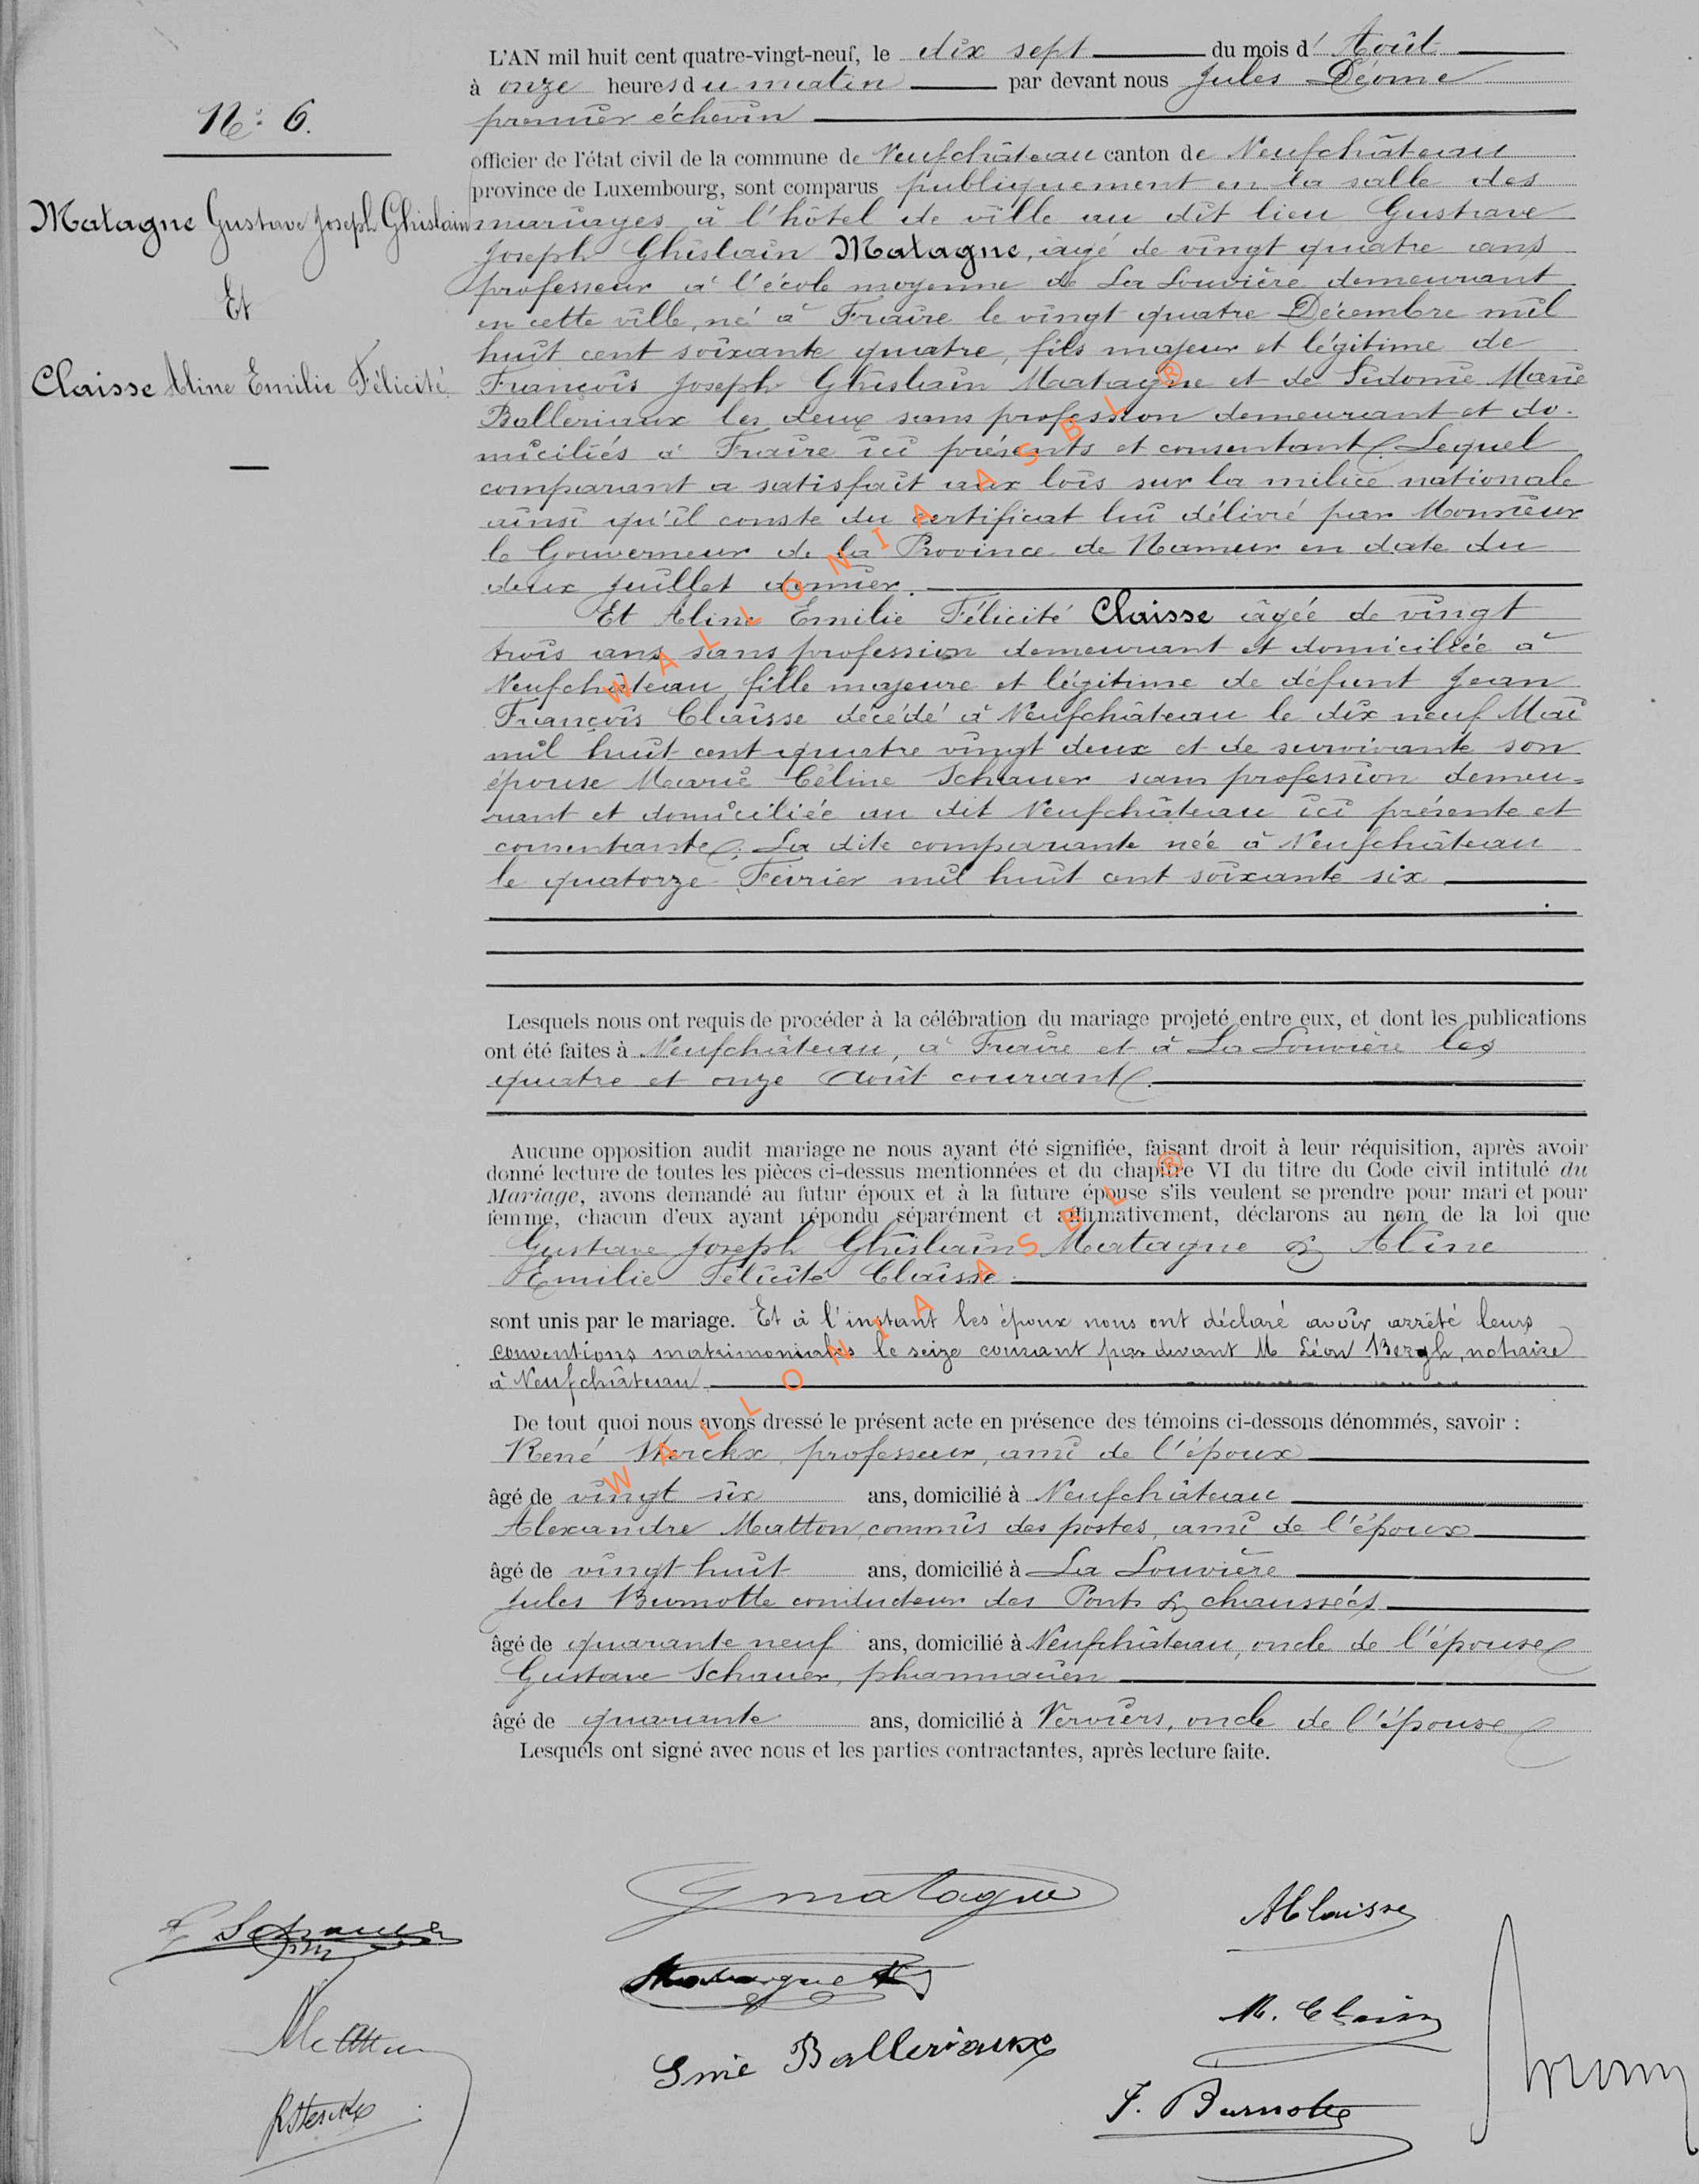 N° 6.
Matagne Gustave Joseph Ghislain
Et
Claisse Aline Emilie Félicité
L'AN mil huit cent quatre-vingt-neuf, le dix sept du mois d' Août
à onze heures du matin par devant nous Jules Déome
premier échevin
officier de l'état civil de la commune de Neufchâteau canton de Neufchâteau
province de Luxembourg, sont comparus publiquement en la salle des
mariages à l'hôtel de ville au dit lieu Gustave
Joseph Ghislain Matagne, âgé de vingt quatre ans
professeur à l'école moyenne de La Louvière demeurant
en cette ville, né à Fraire le vingt quatre Décembre mil
huit cent soixante quatre, fils majeur et légitime de
François Joseph Ghislain Matagne et de Sidonie Marie
Balleriaux les deux sans profession demeurant et do-
miciliés à Fraire ici présents et consentant. Lequel
comparant a satisfait aux lois sur la milice nationale
ainsi qu'il conste du certificat lui délivré par Monsieur
le Gouverneur de la Province de Namur en date du
deux Juillet dernier.
Et Aline Emilie Félicité Claisse âgée de vingt
trois ans sans profession demeurant et domiciliée à
Neufchâteau, fille majeure et légitime de défunt Jean
François Claisse décédé à Neufchâteau le dix neuf Mai
mil huit cent quatre vingt deux et de survivante son
épouse Marie Céline Schauer sans profession demeu=
rant et domiciliée au dit Neufchâteau ici présente et
consentante. La dite comparante née à Neufchâteau
le quatorze Février mil huit cent soixante six
Lesquels nous ont requis de procéder à la célébration du mariage projeté entre eux, et dont les publications
ont été faites à Neufchâteau, à Fraire et à La Louvière les
quatre et onze Août courant.
Aucune opposition audit mariage ne nous ayant été signifiée, faisant droit à leur réquisition, après avoir
donné lecture de toutes les pièces ci-dessus mentionnées et du chapitre VI du titre du Code civil intitulé du
Mariage, avons demandé au futur époux et à la future épouse s'ils veulent se prendre pour mari et pour
femme, chacun d'eux ayant répondu séparément et affirmativement, déclarons au nom de la loi que
Gustave Joseph Ghislain Matagne & Aline
Emilie Félicité Claisse
sont unis par le mariage. Et à l'instant les époux nous ont déclaré avoir arrêté leurs
conventions matrimoniales le seize courant par devant M Léon Bergh, notaire
à Neufchâteau.
De tout quoi nous avons dressé le présent acte en présence des témoins ci-dessous dénommés, savoir :
René Sterckx professeur, ami de l'époux
âgé de vingt six ans, domicilié à Neufchâteau
Alexandre Matton, commis des postes, ami de l'époux
âgé de vingt huit ans, domicilié à La Louvière
Jules Burnotte conducteur des Ponts & chaussées
âgé de quarante neuf ans, domicilié à Neufchâteau, oncle de l'épouse
Gustave Schauer, pharmacien
âgé de quarante ans, domicilié à Verviers, oncle de l'épouse
Lesquels ont signé avec nous et les parties contractantes, après lecture faite.
G Matagne
AClaisse
G Schauer
Matagne
M. Claisse
Matton
Snie Balleriaux
RSterckx
J. Burnotte
WALLONIA ASBL ®
WALLONIA ASBL ®